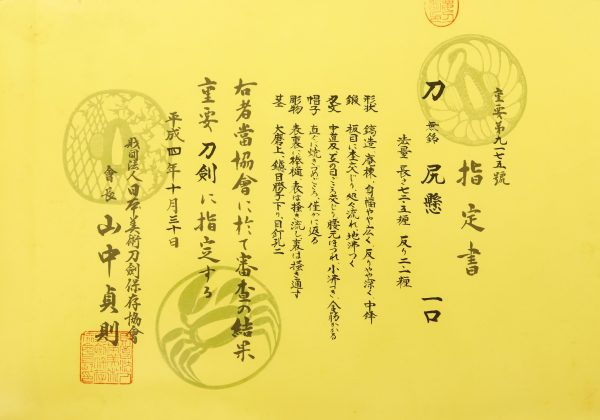 重要第九一七五號
指定書
刀 無銘 尻懸 一口
法量 長さ七二・五糎 反り二・一糎
形状 鎬造、庵棟、身幅やや広く、反りやや深く、中鋒
鍛 板目に杢交じり、処々流れ、地沸つく
刃文 中直刃、互の目ごころ交じり、腰元ほつれ、小沸つき、金筋かかる
帽子 直ぐに焼きつめごころ、僅かに返る
彫物 表裏に棒樋、表は掻き流し、裏は掻き通す
茎 大磨上、鑢目勝手下り、目釘孔二
右者當協會に於て審査の結果
重要刀剣に指定する
平成四年十月三十日
財団法人日本美術刀剣保存協會
會長 山中貞則